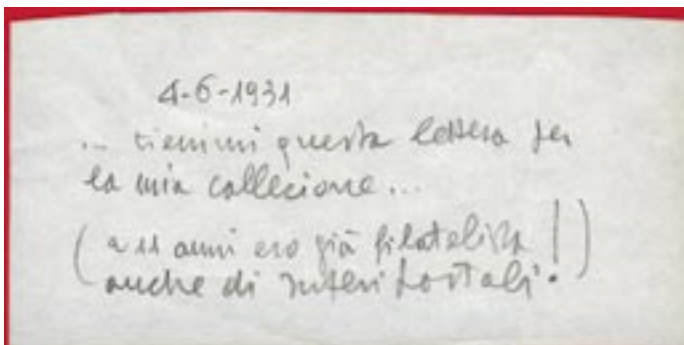 4-6-1931
... tienimi questa lettera per
la mia collezione...
(a 11 anni ero già filatelista!)
anche di interi postali.